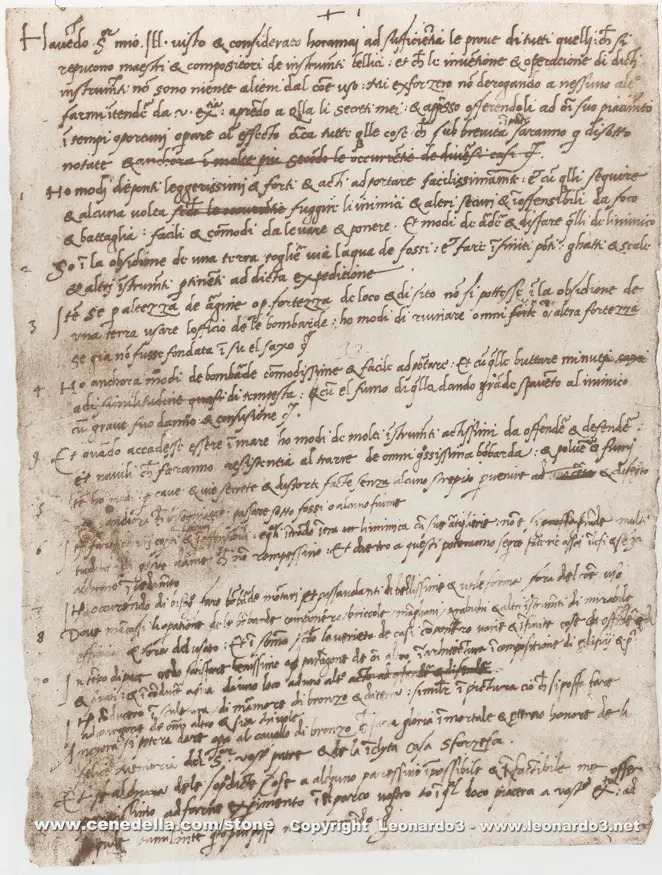 + 1
Havēdo S.or mio Ill. visto & considerato horamai ad sufficiētia le prove di tutti quelli ch si
reputono maestri & compositori de instrumti bellici: et ch le invētione & operatione di dicti
instrumti nō sono niente alieni dal cōe uso: mi exforzero nō derogando a nessuno altro
farmi intēdere da v. ex.tia: aprēdo a qlla li secreti mei: & apsso offerendoli ad oī suo piacimēto
ī tempi oportuni operare cū effecto circa tutte qlle cose ch sub brevita ī parte saranno q disotto
notate & anchora ī molte piu secōdo le occurrētie de diversi casi
Ho modi de ponti leggerissimi & forti & acti ad portare facilissimamte: et cū qlli seguire
& alcuna volta secōdo le occurrētie fuggire li inimici & altri securi & inoffensibili da foco
& battaglia: facili & cōmodi da levare & ponere. Et modi de ardere & disfare qlli de linimico
2 So ī la obsidione de una terra toglier via laqua de fossi: et fare īfiniti pōti ghatti & scale
& altri īstrumti ptinēti ad dicta expeditione
3 Itē se p altezza de argine o p fortezza de loco & di sito nō si pottesse ī la obsidione de
una terra usare lofficio de le bombarde: ho modi di ruinare omni forte o altra fortezza
se gia nō fusse fondata ī su el saxo
4 Ho anchora modi de bombarde cōmodissime & facile ad portare: Et cū qlle buttare minuti
adi similitudine quasi di tempesta: & cū el fumo di qlla dando grāde spavēto al inimico
cū grave suo danno & confusione
9 Et quādo accadesse essere ī mare ho modi de molti īstrumti actissimi da offendere & defendere
et navili ch faranno resistentia al trarre de omni grossissima bōbarda: & polvere & fumi
5 Itē ho modi p cave & vie secrete & distorte facte senza alcuno strepito p venire ad & disegnato
anchora ch bisognasse passare sotto fossi o alcuno fiume
6 carri coperti & inoffensibili: e quali ītrādo ītra li inimica cū sue artiglierie nō e si grosse multi
tudine di gente darme ch nō rompessino: Et dietro a questi poteranno seguire fanterie assai illesi & senza
alchuno ī
7 Itē occurrendo di bisogno faro bōbarde mortari et passavolanti di bellissime & utile forme fora del cōe uso
8 Dove mancassi la opatione de le bōbarde componero briccole māgani trabuchi & altri īstrumti di mirabile
efficacia & fora del usato: Et ī sōma secōdo la varieta de casi componero varie & īfinite cose da offendere &
10 In tēpo di pace credo satisfare benissimo ad paragone de oī altro ī architectura ī compositione di edificii &
& privati: & ī conducer aqua da uno loco ad uno altro acto ad offender & difender
Itē conducero ī sculptura di marmore di bronzo & di terra: similiter ī pictura cio ch si possa fare
ad paragone de omni altro & sia chi vole
Ancora si potera dare opera al cavallo di bronzo che sara gloria īmortale & eterno honore de la
felice memoria del S.or vostro patre & de la īclyta casa Sforzesca
Et se alchuna de le sopra dicte cose a alchuno paressino īpossibile & īfactibile me offero
ad farne experimento ī el parco vostro o ī qual loco piacera a vostr ex.tia: ad
humilmente
www.cenedella.com/stone Copyright Leonardo3 - www.leonardo3.net